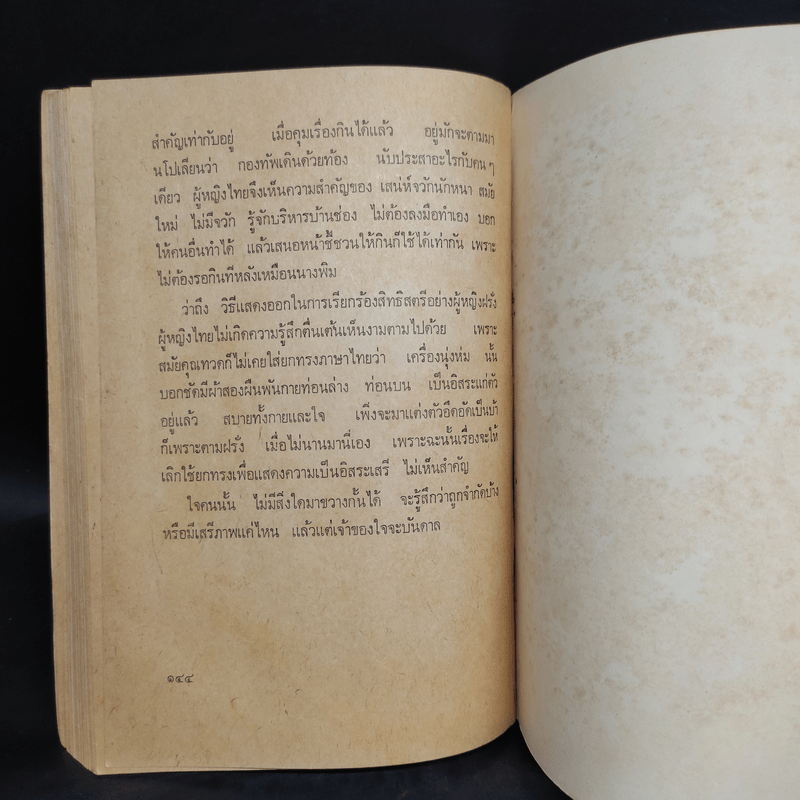 สำคัญเท่ากับอยู่ เมื่อคุมเรื่องกินได้แล้ว อยู่มักจะตามมา
นโปเลียนว่า กองทัพเดินด้วยท้อง นับประสาอะไรกับคน ๆ
เดียว ผู้หญิงไทยจึงเห็นความสำคัญของ เสน่ห์จวักนักหนา สมัย
ใหม่ ไม่มีจวัก รู้จักบริหารบ้านช่อง ไม่ต้องลงมือทำเอง บอก
ให้คนอื่นทำได้ แล้วเสนอหน้าชี้ชวนให้กินก็ใช้ได้เท่ากัน เพราะ
ไม่ต้องรอกินทีหลังเหมือนนางพิม
ว่าถึง วิธีแสดงออกในการเรียกร้องสิทธิสตรีอย่างผู้หญิงฝรั่ง
ผู้หญิงไทยไม่เกิดความรู้สึกตื่นเต้นเห็นงามตามไปด้วย เพราะ
สมัยคุณทวดก็ไม่เคยใส่ยกทรงภาษาไทยว่า เครื่องนุ่งห่ม นั้น
บอกชัดมีผ้าสองผืนพันกายท่อนล่าง ท่อนบน เป็นอิสระแก่ตัว
อยู่แล้ว สบายทั้งกายและใจ เพิ่งจะมาแต่งตัวอึดอัดเป็นบ้า
ก็เพราะตามฝรั่ง เมื่อไม่นานมานี่เอง เพราะฉะนั้นเรื่องจะให้
เลิกใช้ยกทรงเพื่อแสดงความเป็นอิสระเสรี ไม่เห็นสำคัญ
ใจคนนั้น ไม่มีสิ่งใดมาขวางกั้นได้ จะรู้สึกว่าถูกจำกัดบ้าง
หรือมีเสรีภาพแค่ไหน แล้วแต่เจ้าของใจจะบันดาล
๑๔๔